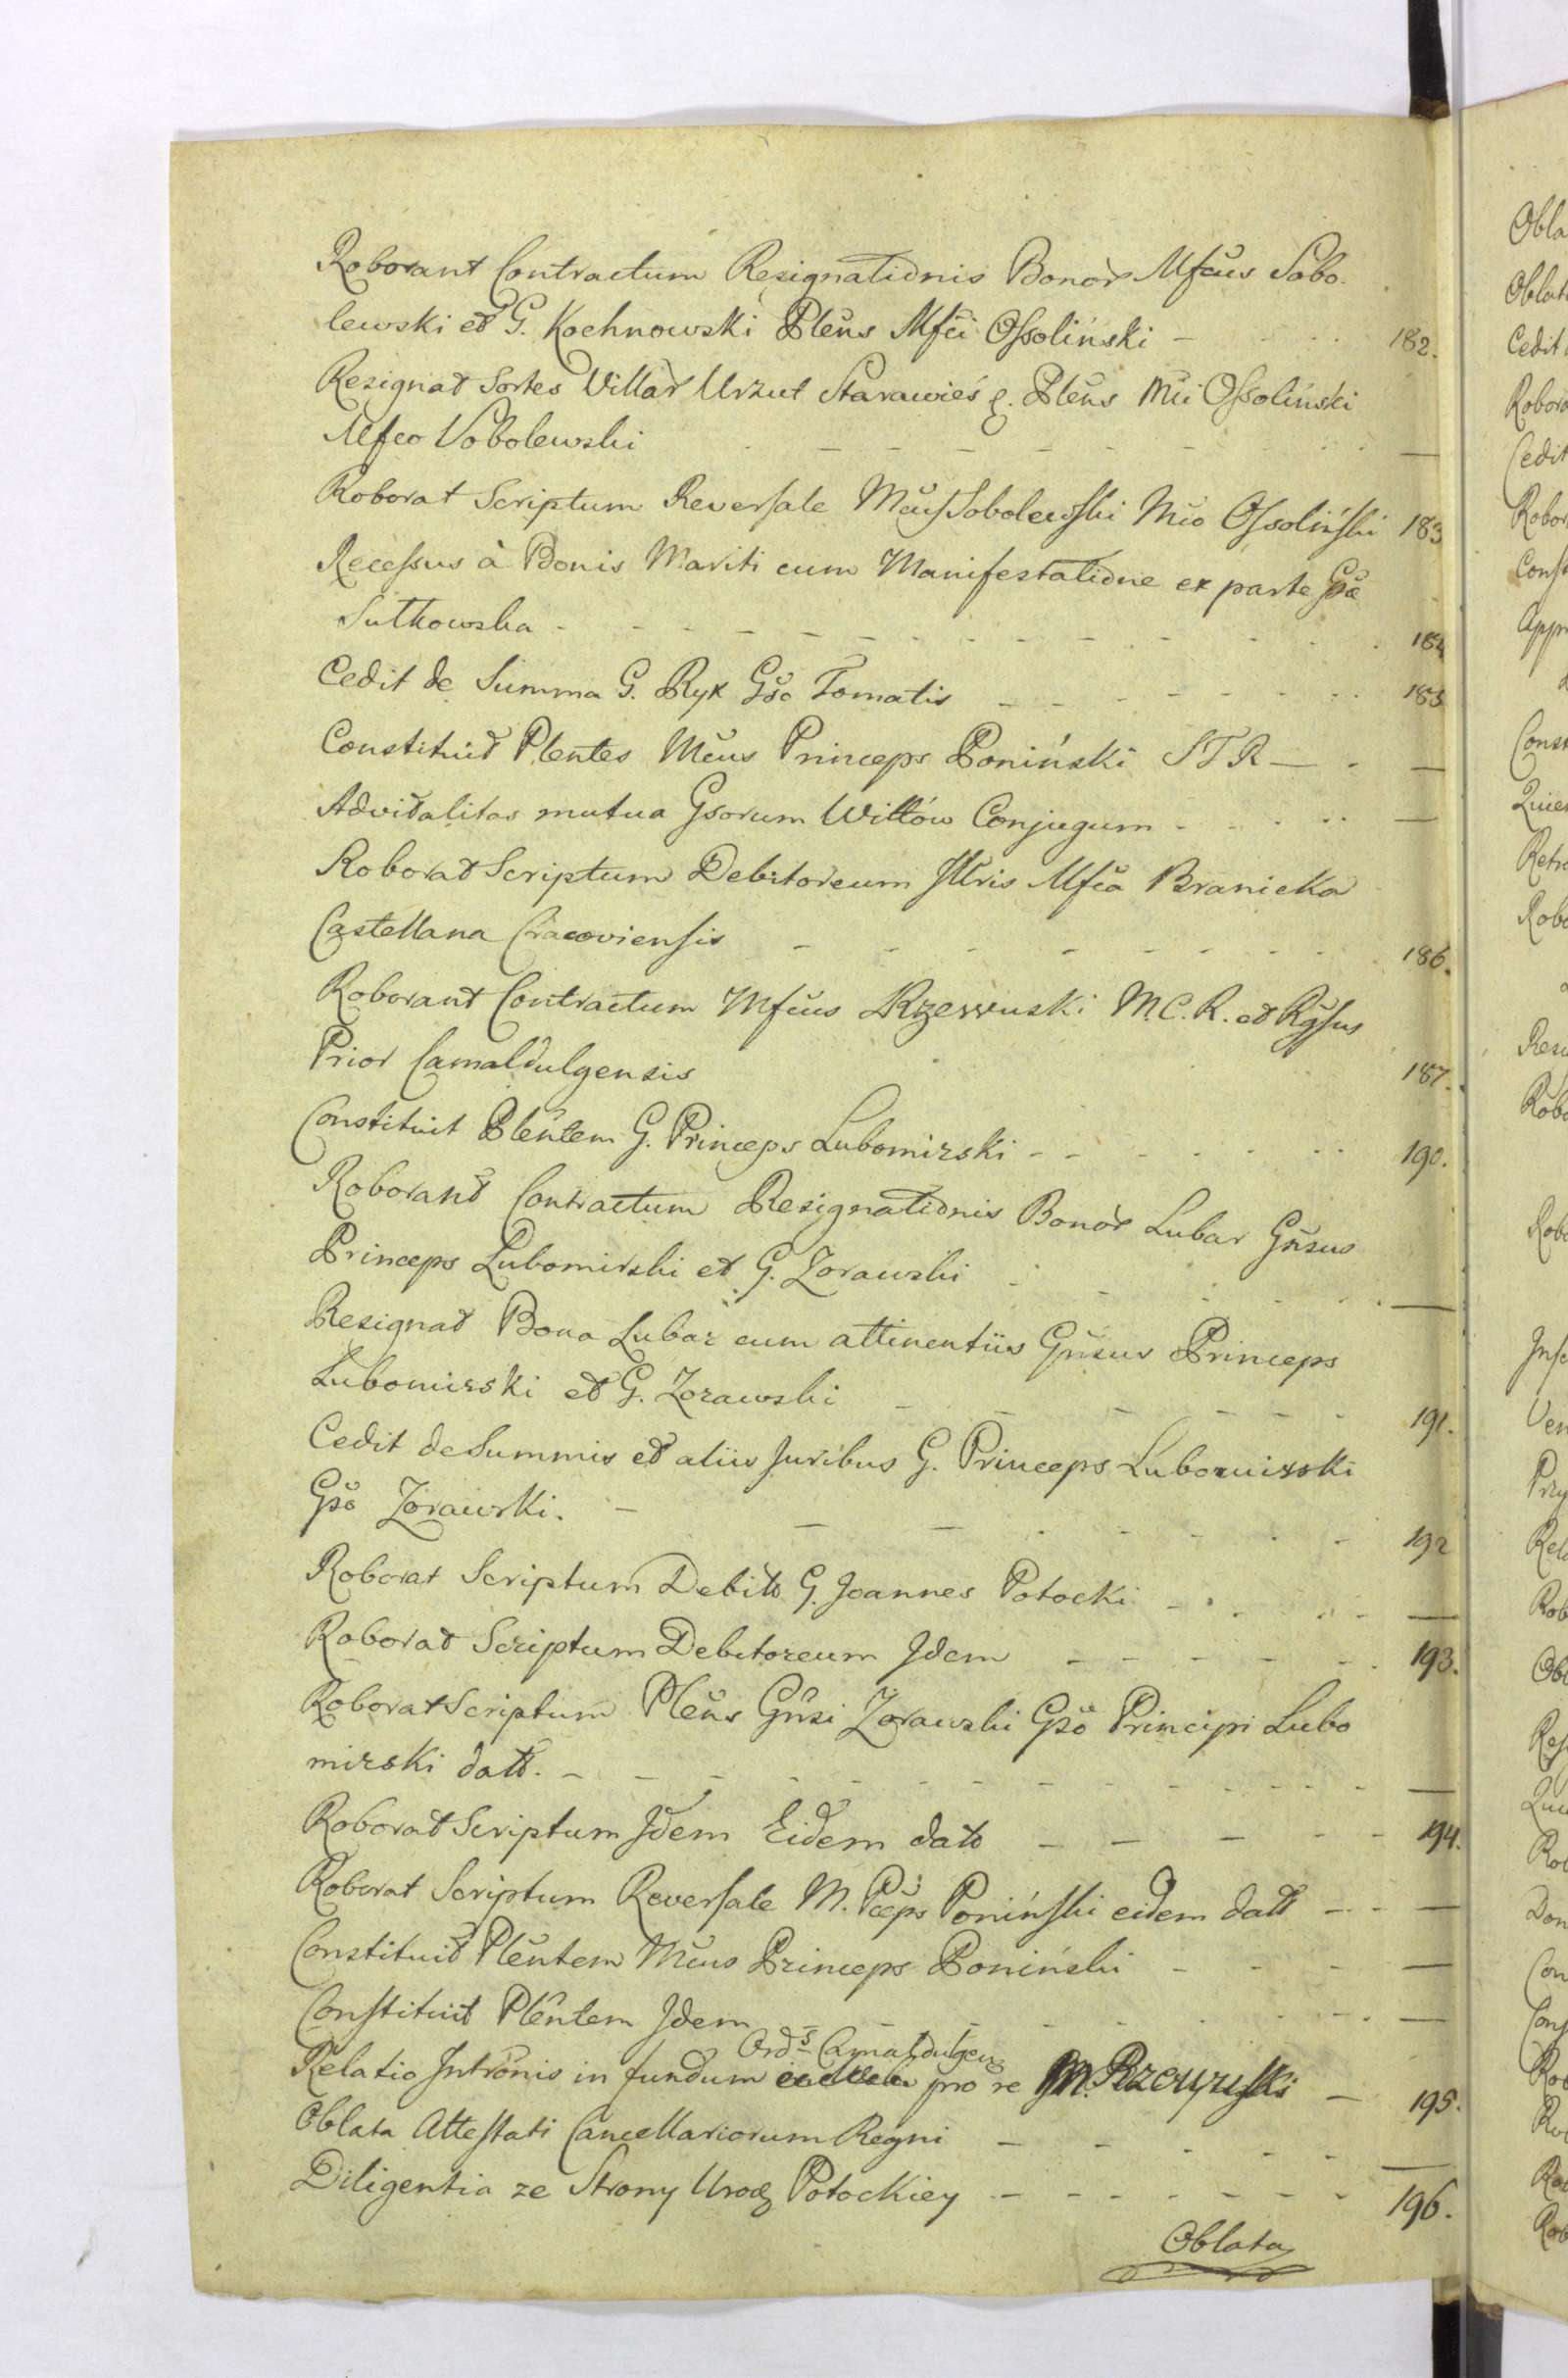 Roborant Contractum Resignationis Bonor Mfcus Sobo-
lewski et G. Kochnowski Plens Mfci Ossoliński - 182.
Resignat Sortes Villar Urzut Starawieś p. Plens Mci Ossoliński
Mfco Sobolewski - - - - - - -
Roborat Scriptum Reversale Mcus Sobolewski Mco Ossoliński 183
Recessus à Bonis Mariti cum Manifestatione ex parte Gsæ
Sutkowska - - - - - - - 184
Cedit de Summa G. Ryx Gso Tomatis - - - - - 185
Constituit Plentes Mcus Princeps Poniński STR - -
Advitalitas mutua Gsorum Wittów Conjugum - - - -
Roborat Scriptum Debitoreum Illris Mfca Branicka
Castellana Cracoviensis - - - - - - - 186.
Roborant Contractum Mfcus Rzewuski M.C.R. et Rgsus
Prior Camaldulgensis 187.
Constituit Plentem G. Princeps Lubomirski - - - - - 190.
Roborant Contractum Resignationis Bonor Lubar Gnsus
Princeps Lubomirski et G. Zorawski - - - - -
Resignat Bona Lubar cum attinentiis Gnsus Princeps
Lubomirski et G. Zorawski - - - - - 191.
Cedit de Summis et aliis Juribus G. Princeps Lubomirski
Gso Zorawski. - - - - - - 192
Roborat Scriptum Debito G. Joannes Potocki - - - -
Roborat Scriptum Debitoreum Idem - - - - - 193.
Roborat Scriptum Plens Gnsi Zorawski Gso Principi Lubo
mirski datt. - - - - - - - -
Roborat Scriptum Idem Eidem dato - - - - - 194.
Roborat Scriptum Reversale M. Pceps Poniński eidem datt - - -
Constituit Plentem Mcus Princeps Poniński - - - -
Constituit Plentem Idem - - - - -
Ords Camaldulgens
Relatio Intronis in fundum pro re M. Rzewuski - 195.
Oblata Attestati Cancellariorum Regni - - - - -
Diligentia ze Strony Urodz Potockiey - - - - - - - 196.
Oblata